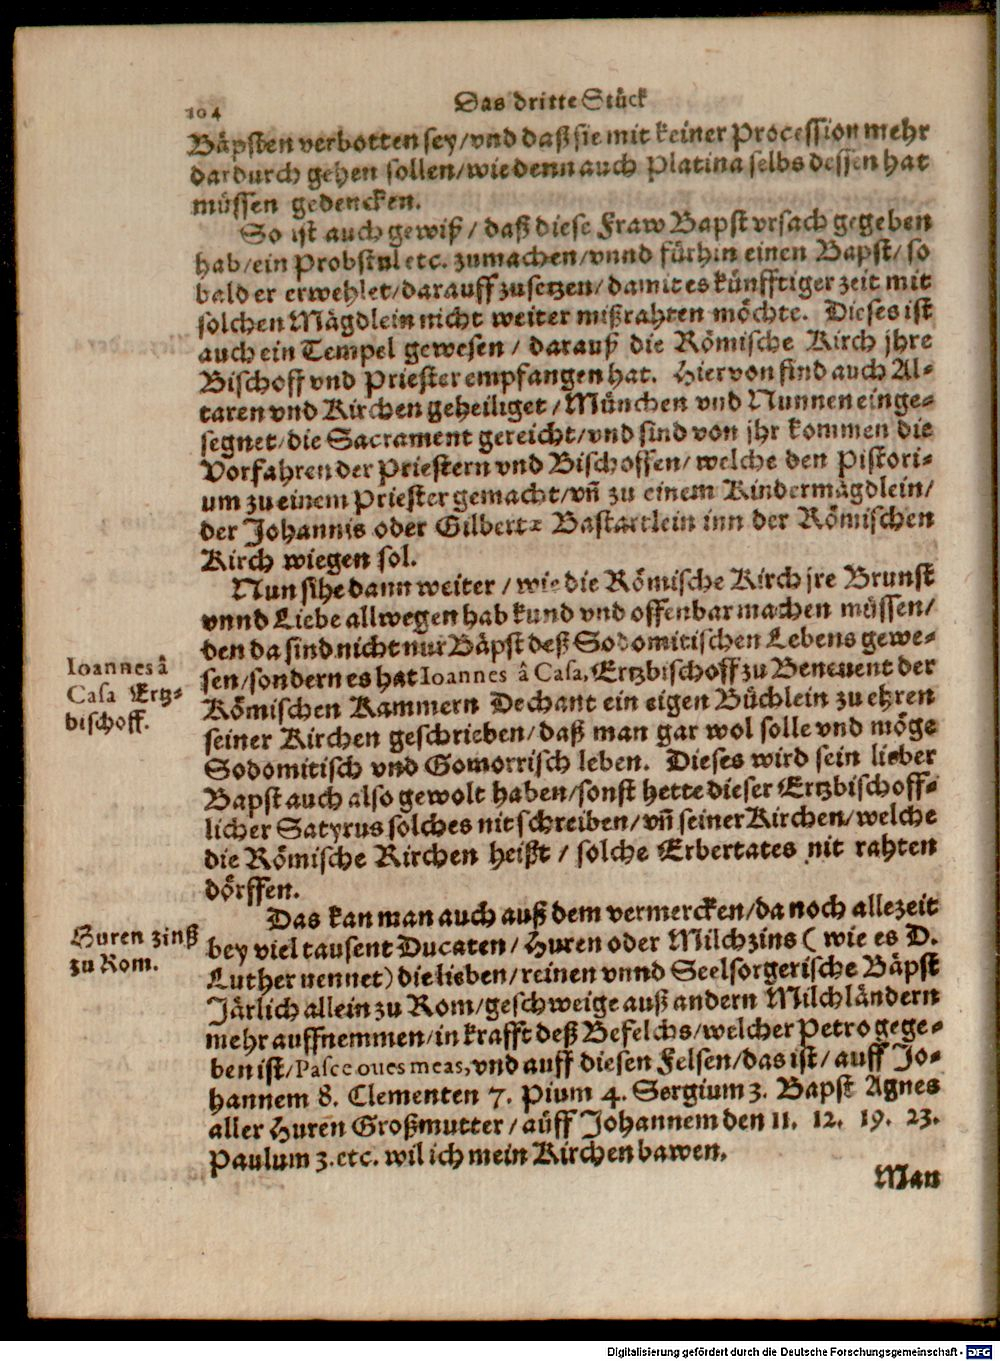 104
Das dritte Stück
Bäpsten verbotten sey/vnd daß sie mit keiner Procession mehr
dardurch gehen sollen/wie denn auch Platina selbs dessen hat
müssen gedencken.
So ist auch gewiß/ daß diese Fraw Bapst vrsach gegeben
hab/ein Probstul etc. zumachen/vnnd fürhin einen Bapst/so
bald er erwehlet/darauff zusetzen/damit es künfftiger zeit mit
solchen Mägdlein nicht weiter mißrahten möchte. Dieses ist
auch ein Tempel gewesen / darauß die Römische Kirch jhre
Bischoff vnd Priester empfangen hat. Hiervon sind auch Al-
taren vnd Kirchen geheiliget/München vnd Nunnen einge-
segnet/die Sacrament gereicht/vnd sind von jhr kommen die
Vorfahren der Priestern vnd Bischoffen/welche den Pistori-
um zu einem Priester gemacht/vñ zu einem Kindermägdlein/
der Johannis oder Gilberts Bastartlein inn der Römischen
Kirch wiegen sol.
Nun sihe dann weiter / wie die Römische Kirch jre Brunst
vnnd Liebe allwegen hab kund vnd offenbar machen müssen/
den da sind nicht nur Bäpst deß Sodomitischen Lebens gewe-
Ioannes â
Casa Ertz-
bischoff.
sen/sondern es hat Ioannes â Casa, Ertzbischoff zu Beneuent der
Römischen Kammern Dechant ein eigen Büchlein zu ehren
seiner Kirchen geschrieben/daß man gar wol solle vnd möge
Sodomitisch vnd Gomorrisch leben. Dieses wird sein lieber
Bapst auch also gewolt haben/sonst hette dieser Ertzbischoff-
licher Satyrus solches nit schreiben/vñ seiner Kirchen/welche
die Römische Kirchen heißt / solche Erbertates nit rahten
dörffen.
Huren zinß
zu Rom.
Das kan man auch auß dem vermercken/da noch allezeit
bey viel tausent Ducaten/ Huren oder Milchzins ( wie es D.
Luther nennet) die lieben/reinen vnnd Seelsorgerische Bäpst
Järlich allein zu Rom/geschweige auß andern Milchländern
mehr auffnemmen/in krafft deß Befelchs/welcher Petro gege-
ben ist/Pasce oues meas, vnd auff diesen Felsen/das ist/ auff Jo-
hannem 8. Clementen 7. Pium 4. Sergium 3. Bapst Agnes
aller Huren Großmutter / auff Johannem den 11. 12. 19. 23.
Paulum 3. etc. wil ich mein Kirchen bawen.
Man
Digitalisierung gefördert durch die Deutsche Forschungsgemeinschaft - DFG